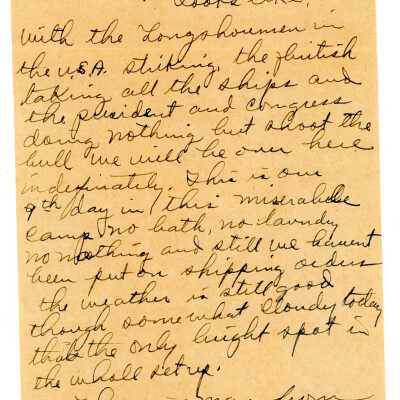 looks like,
with the Longshoremen in
the U.S.A. striking, the british
taking all the ships and
the president and congress
doing nothing but shoot the
bull we will be over here
indefinately. This is our
9th day in this miserable
camp no bath, no laundry
no nothing and still we havent
been put on shipping orders
the weather is still good
though somewhat cloudy today
that the only bright spot in
the whole setup.
from